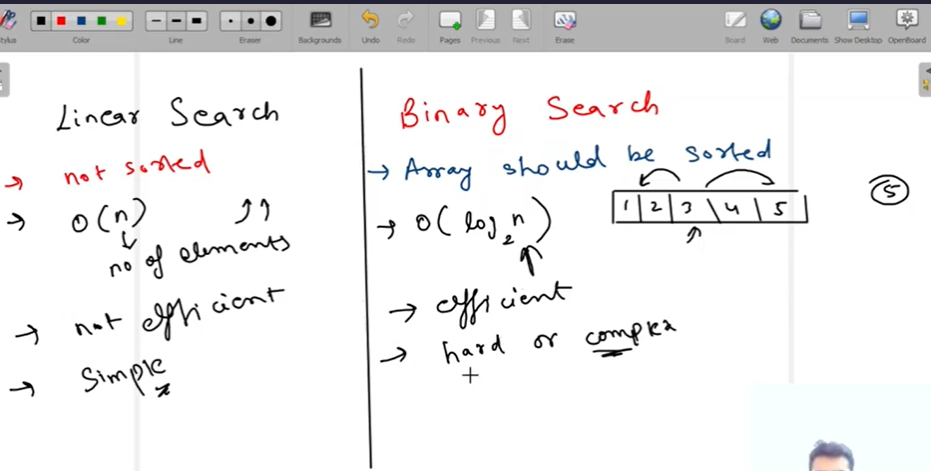 Stylus
Color
Line
Eraser
Backgrounds
Undo
Redo
Pages
Previous
Next
Erase
Board
Web
Documents
Show Desktop
OpenBoard
Linear Search
→ not sorted
→ O(n)
no of elements
→ not efficient
→ Simple
Binary Search
→ Array should be sorted
→ O(log₂n)
1 2 3 4 5
5
→ efficient
→ hard or complex